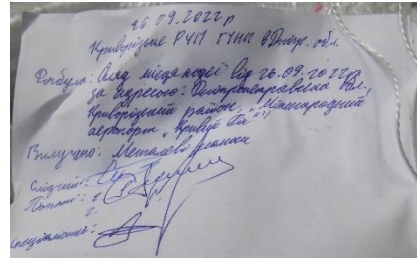 26.09.2022р
Криворізьке РУП ГУНП в Дніпр. обл.
Огляд місця події від 26.09.2022р.
за адресою: Дніпропетровська обл.,
Криворізький район, "Міжнародний
аеропорт "Кривий Ріг""
Вилучено: Металеві уламки
Слідчий:
Поняті: 1.
2.
Спеціаліст: